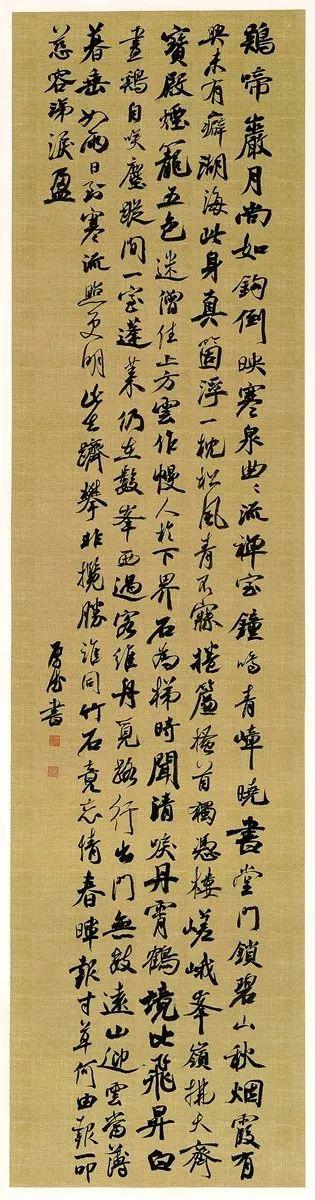 鷄啼巖月尚如鈎倒映寒泉曲〻流禪室鐘鳴青嶂曉書堂門鎖碧山秋烟霞有
興未有癖湖海此身真箇浮一枕松風青不寐捲簾搔首獨憑樓嵯峨峯嶺天齊
寶殿煙籠五色迷僧住上方雲作幔人於下界石為梯時聞清唳丹霄鶴境比飛昇白
晝鷄自笑塵蹤間一宿蓬萊仍在數峯西過客維舟覓路行出門無數遠山迎雲當薄
暮垂如雨日到寒流照更明此躋攀非攬勝誰同竹石竟忘情春暉寸草何由報一叩
慈容涕淚盈
書